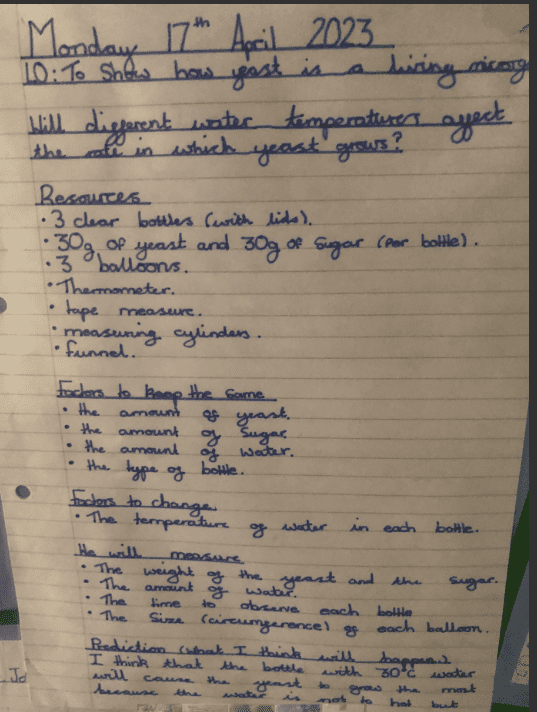 Monday 17th April 2023
LO: To Show how yeast is a living microrg
Will different water temperatures affect
the rate in which yeast grows?
Resources
• 3 clear bottles (with lids).
• 30g of yeast and 30g of Sugar (Per bottle).
• 3 balloons.
• Thermometer.
• tape measure.
• measuring cylinders.
• funnel.
Factors to keep the Same
• the amount of yeast.
• the amount of Sugar
• the amount of water.
• the type of bottle.
Factors to change.
• The temperature of water in each bottle.
We will measure
• The weight of the yeast and the sugar.
• The amount of water.
• The time to observe each bottle
• The Size (circumference) of each balloon.
Prediction (what I think will happen)
I think that the bottle with 30°C water
will cause the yeast to grow the most
because the water is not to hot but
Jo